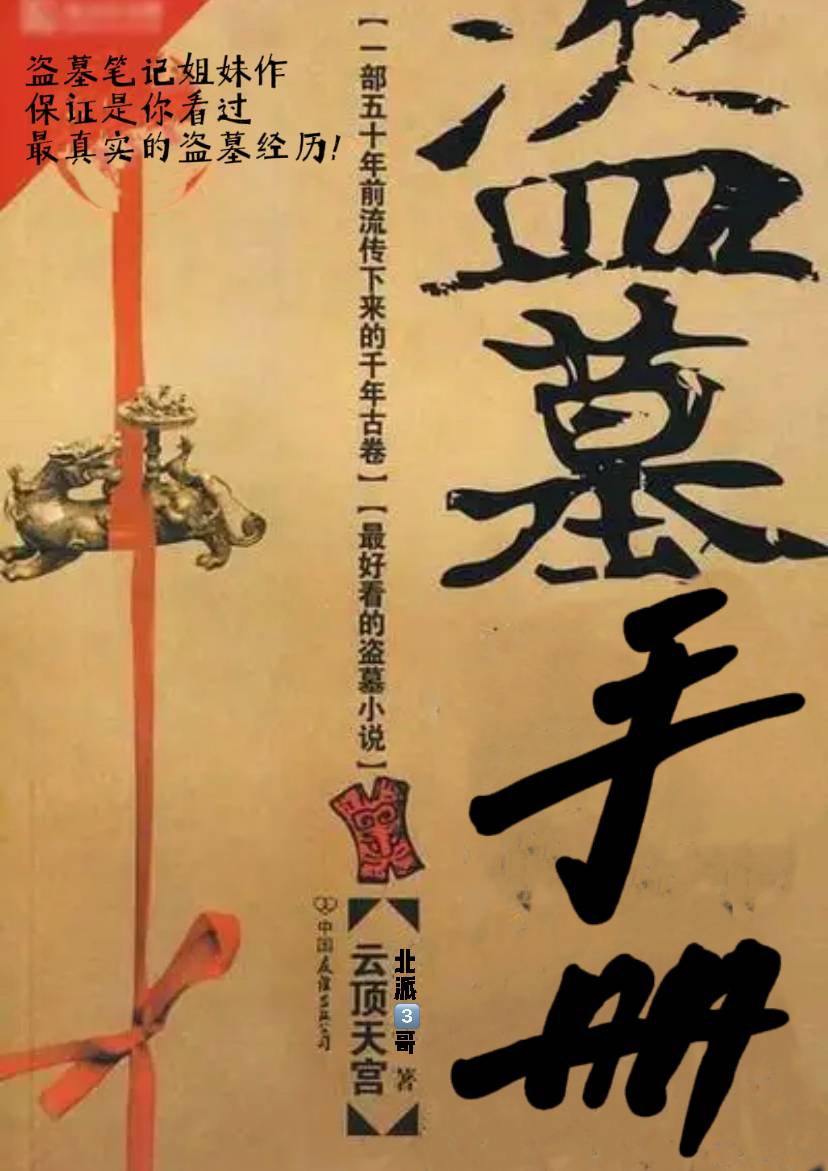 盗墓笔记姐妹作
保证是你看过
最真实的盗墓经历!
【一部五十年前流传下来的千年古卷】【最好看的盗墓小说】
盗墓
手册
云顶天宫
北派3️⃣哥
著
中国友谊出版公司